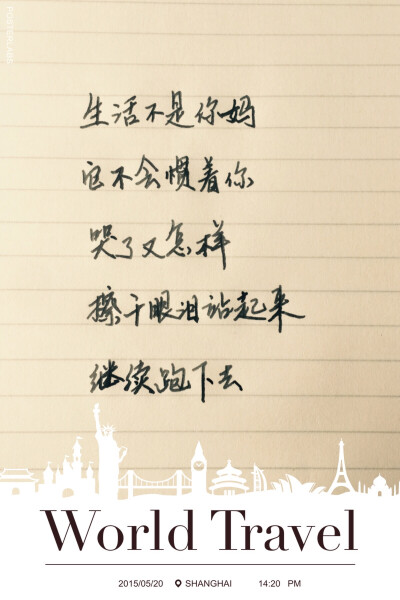 生活不是你妈
它不会惯着你
哭了又怎样
擦干眼泪站起来
继续跑下去
World Travel
2015/05/20 SHANGHAI 14:20 PM